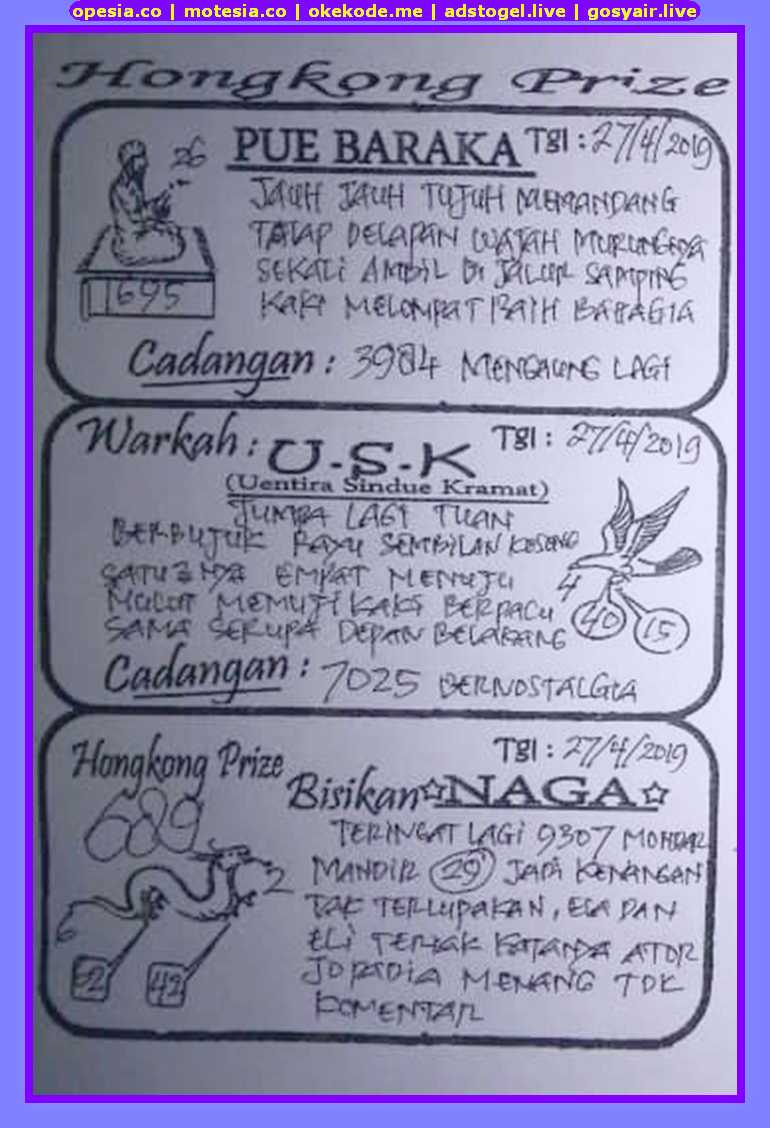 opesia.co | motesia.co | okekode.me | adstogel.live | gosyair.live
Hongkong Prize
26
PUE BARAKA
Tgl : 27/4/2019
JAUH JAUH TUJUH MEMANDANG
TATAP DELAPAN WAJAH MURUNGNYA
SEKALI AMBIL DI JALUR SAMPING
KAKI MELOMPAT RAIH BAHAGIA
1695
Cadangan : 3984 MENGAUNG LAGI
Warkah : U-S-K
Tgl : 27/4/2019
(Uentira Sindue Kramat)
JUMPA LAGI TUAN
BERBUJUK RAYU SEMBILAN KOSONG
SATU 3 NYA EMPAT MENUJU
MULUT MEMUJI KAKI BERPACU
SAMA SERUPA DEPAN BELAKANG
4
40 15
Cadangan : 7025 BERNOSTALGIA
Hongkong Prize
Tgl : 27/4/2019
Bisikan ☆NAGA☆
689
TERINGAT LAGI 9307 MONDAR
MANDIR 29 JADI KENANGAN
TAK TERLUPAKAN, EGA DAN
ELI TERIAK KATANYA ATOR
JOPADIA MENANG TDK
KOMENTAR
2
6
52 42